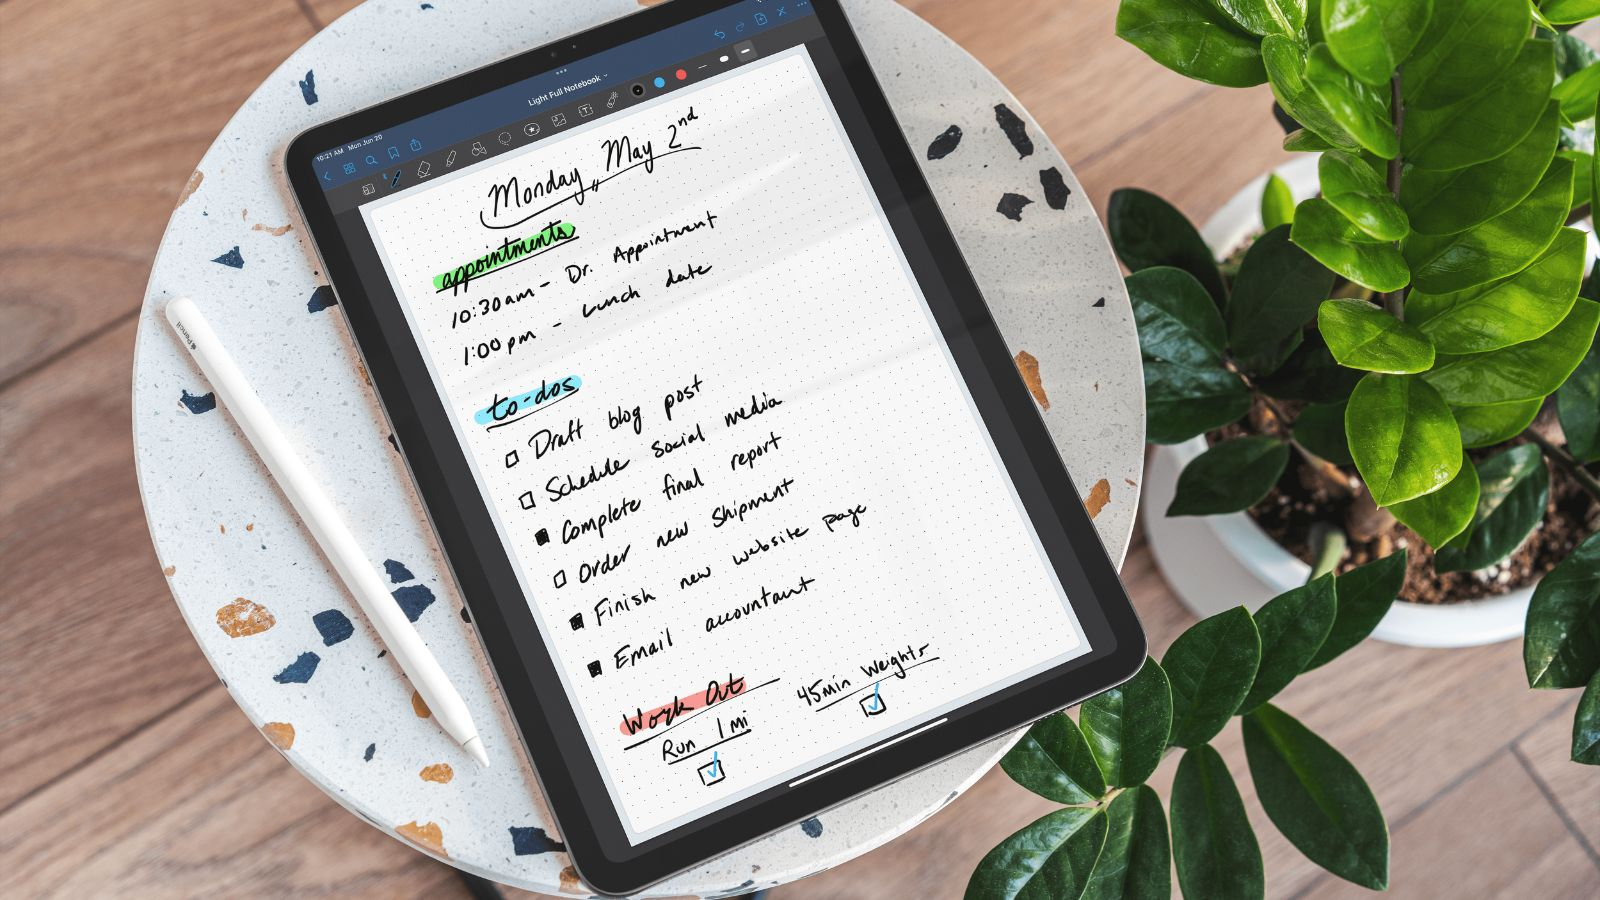 10:21 AM Mon Jun 20
Light Full Notebook
Monday, May 2nd
appointments
10:30am - Dr. Appointment
1:00pm - Lunch date
to-dos
Draft blog post
Schedule social media
Complete final report
Order new shipment
Finish new website page
Email accountant
Work Out
Run 1mi
45min Weights
Pencil